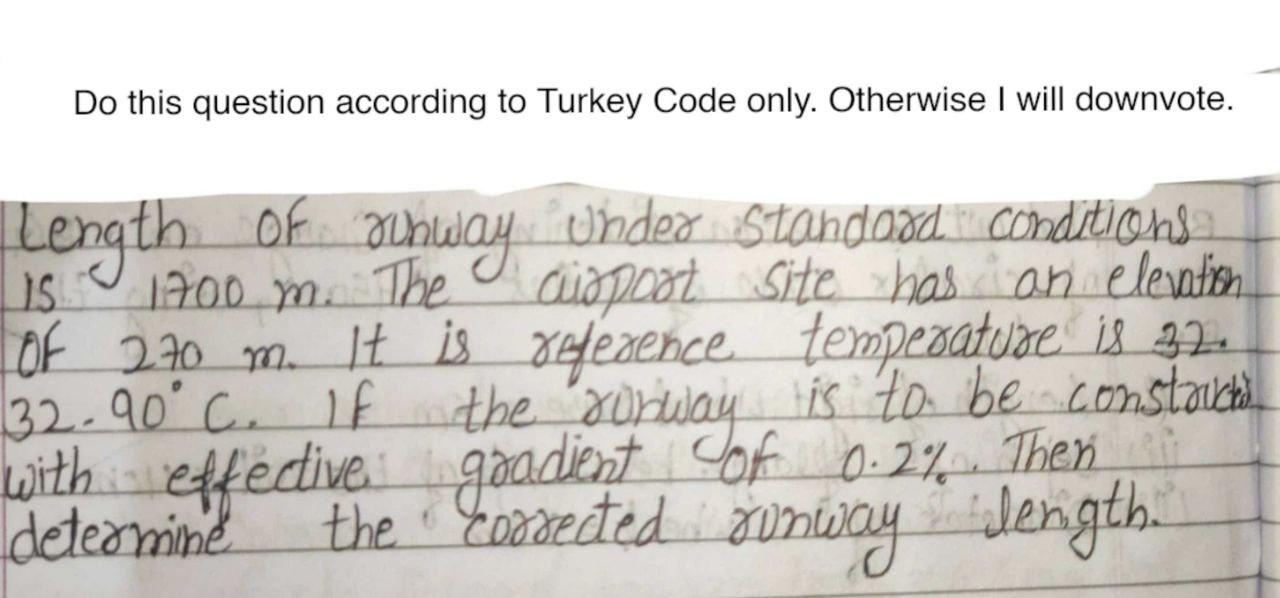 Do this question according to Turkey Code only. Otherwise I will downvote.
Length of runway under standard conditions
is 1700 m. The airport site has an elevation
of 270 m. It is reference temperature is 32.
32.90° C. If the runway is to be constructed
with effective gradient of 0.2%. Then
determine the corrected runway length.